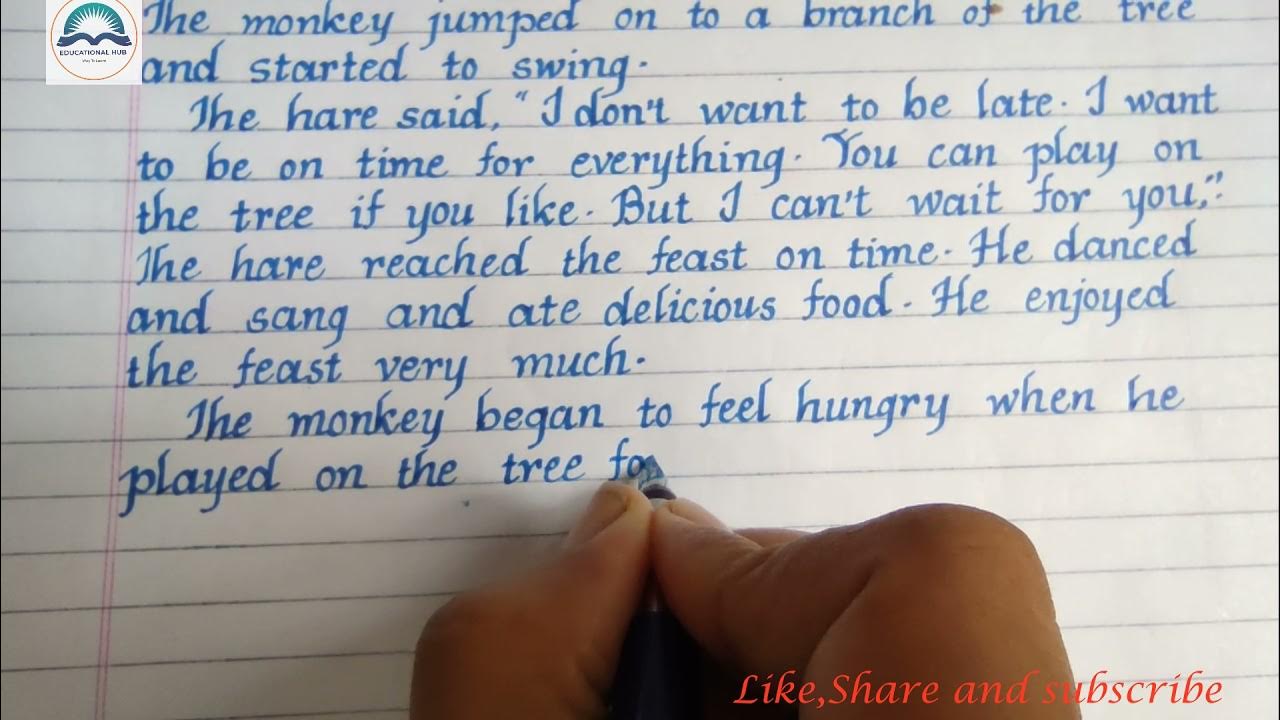 EDUCATIONAL HUB
Way To Learn
The monkey jumped on to a branch of the tree
and started to swing.
The hare said, "I don't want to be late. I want
to be on time for everything. You can play on
the tree if you like. But I can't wait for you,".
The hare reached the feast on time. He danced
and sang and ate delicious food. He enjoyed
the feast very much.
The monkey began to feel hungry when he
played on the tree fo
Like,Share and subscribe